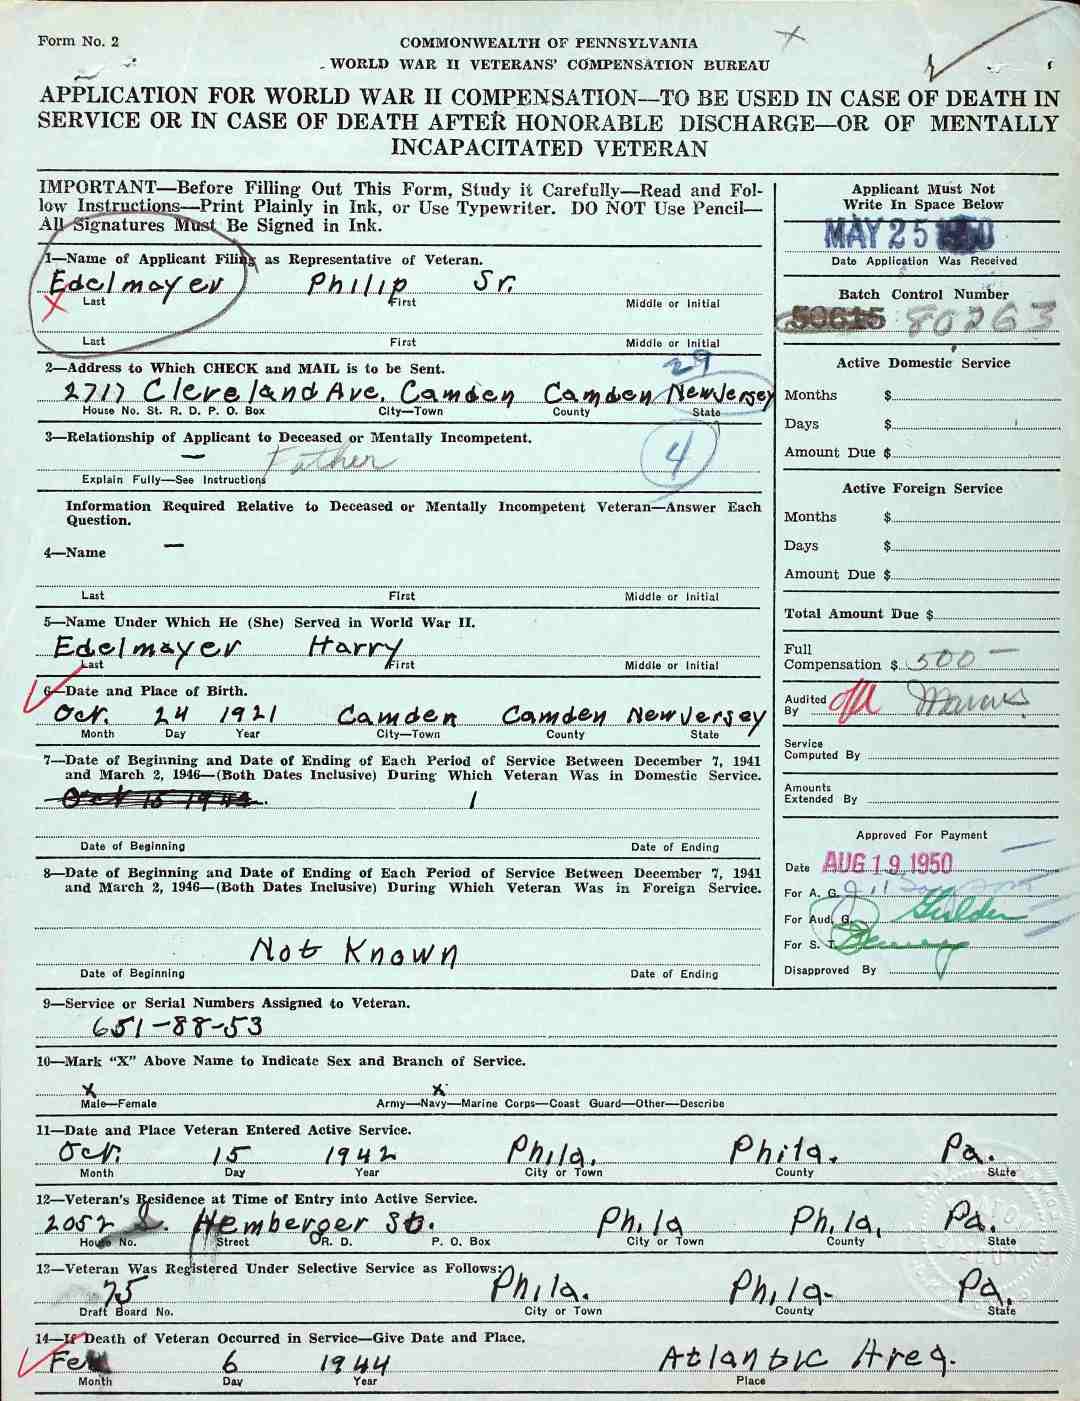 Form No. 2
COMMONWEALTH OF PENNSYLVANIA
WORLD WAR II VETERANS' COMPENSATION BUREAU
APPLICATION FOR WORLD WAR II COMPENSATION—TO BE USED IN CASE OF DEATH IN
SERVICE OR IN CASE OF DEATH AFTER HONORABLE DISCHARGE—OR OF MENTALLY
INCAPACITATED VETERAN
IMPORTANT—Before Filling Out This Form, Study it Carefully—Read and Fol-
low Instructions—Print Plainly in Ink, or Use Typewriter. DO NOT Use Pencil—
All Signatures Must Be Signed in Ink.
1—Name of Applicant Filing as Representative of Veteran.
Edelmayer Philip Sr.
Last First Middle or Initial
Last First Middle or Initial
2—Address to Which CHECK and MAIL is to be Sent.
29
2717 Cleveland Ave. Camden Camden New Jersey
House No. St. R. D. P. O. Box City—Town County State
3—Relationship of Applicant to Deceased or Mentally Incompetent.
— Father 4
Explain Fully—See Instructions
Information Required Relative to Deceased or Mentally Incompetent Veteran—Answer Each
Question.
4—Name —
Last First Middle or Initial
5—Name Under Which He (She) Served in World War II.
Edelmayer Harry
Last First Middle or Initial
6—Date and Place of Birth.
Oct. 24 1921 Camden Camden New Jersey
Month Day Year City—Town County State
7—Date of Beginning and Date of Ending of Each Period of Service Between December 7, 1941
and March 2, 1946—(Both Dates Inclusive) During Which Veteran Was in Domestic Service.
Oct 15 1942. /
Date of Beginning Date of Ending
8—Date of Beginning and Date of Ending of Each Period of Service Between December 7, 1941
and March 2, 1946—(Both Dates Inclusive) During Which Veteran Was in Foreign Service.
Not Known
Date of Beginning Date of Ending
Applicant Must Not
Write In Space Below
MAY 25 1950
Date Application Was Received
Batch Control Number
50615 80263
Active Domestic Service
Months $
Days $
Amount Due $
Active Foreign Service
Months $
Days $
Amount Due $
Total Amount Due $
Full
Compensation $ 500 —
Audited
By
Service
Computed By
Amounts
Extended By
Approved For Payment
Date AUG 19 1950
For A. G.
For Aud. G.
For S. T.
Disapproved By
9—Service or Serial Numbers Assigned to Veteran.
651-88-53
10—Mark "X" Above Name to Indicate Sex and Branch of Service.
X X
Male—Female Army—Navy—Marine Corps—Coast Guard—Other—Describe
11—Date and Place Veteran Entered Active Service.
Oct. 15 1942 Phila. Phila. Pa.
Month Day Year City or Town County State
12—Veteran's Residence at Time of Entry into Active Service.
2052 S. Hemberger St. Phila Phila. Pa.
House No. Street R. D. P. O. Box City or Town County State
13—Veteran Was Registered Under Selective Service as Follows:
75 Phila. Phila. Pa.
Draft Board No. City or Town County State
14—If Death of Veteran Occurred in Service—Give Date and Place.
6 1944 Atlantic Area.
Month Day Year Place